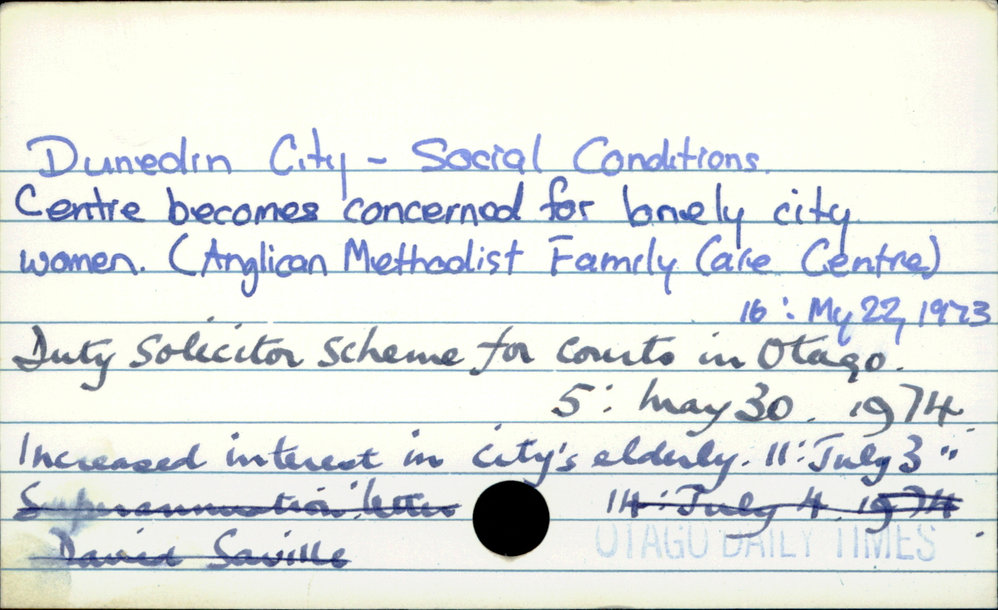 Dunedin City - Social Conditions.
Centre becomes concerned for lonely city
women. (Anglican Methodist Family Care Centre)
16 : My 22, 1973
Duty Solicitor Scheme for Courts in Otago.
5 : May 30. 1974
Increased interest in city's elderly. 11 : July 3 "
Superannuation letter 14 : July 4. 1974
David Saville
OTAGO DAILY TIMES